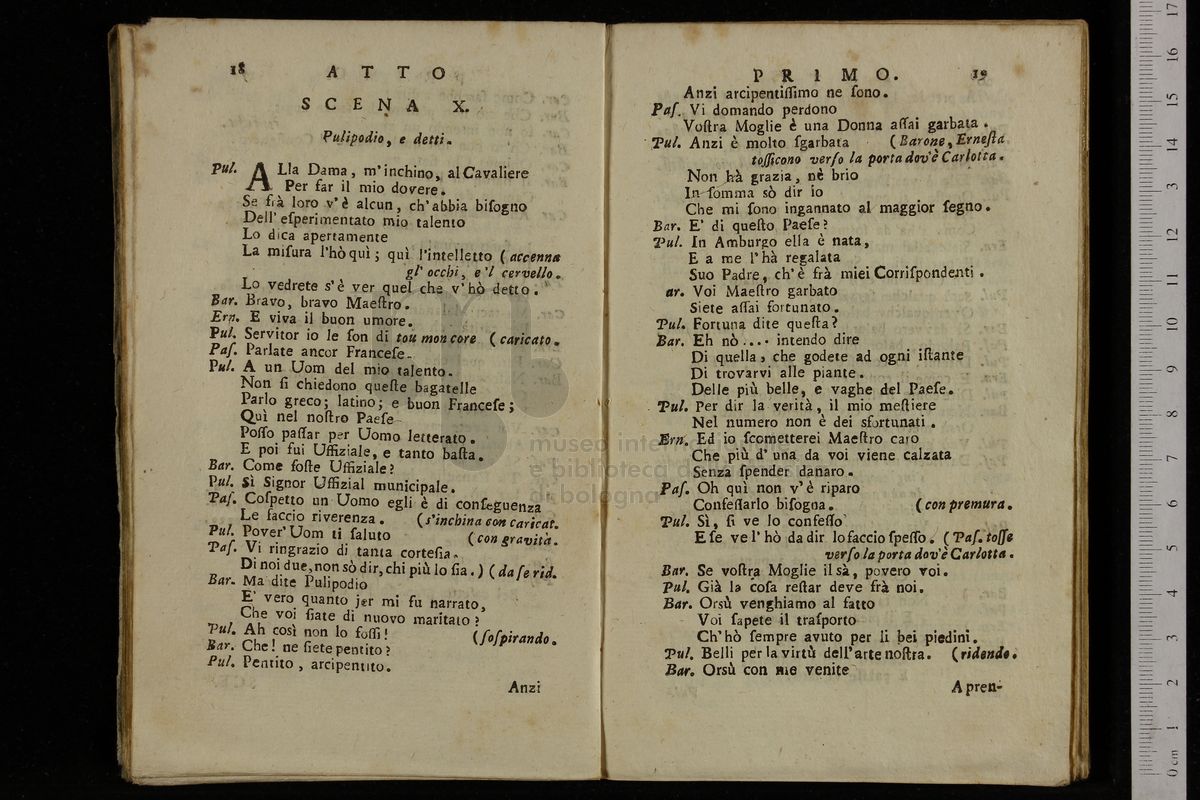 18 ATTO
SCENA X.
Pulipodio, e detti.
Pul. ALla Dama, m'inchino, al Cavaliere
Per far il mio dovere.
Se frà loro v'è alcun, ch'abbia bisogno
Dell' esperimentato mio talento
Lo dica apertamente
La misura l'hò quì; quì l'intelletto (accenna
gl' occhi, e 'l cervello.
Lo vedrete s'è ver quel che v'hò detto.
Bar. Bravo, bravo Maestro.
Ern. E viva il buon umore.
Pul. Servitor io le son di tou mon core (caricato.
Pas. Parlate ancor Francese.
Pul. A un Uom del mio talento.
Non si chiedono queste bagatelle
Parlo greco; latino; e buon Francese;
Quì nel nostro Paese
Posso passar per Uomo letterato.
E poi fui Uffiziale, e tanto basta.
Bar. Come foste Uffiziale?
Pul. Sì Signor Uffizial municipale.
Pas. Cospetto un Uomo egli è di conseguenza
Le faccio riverenza. (s'inchina con caricat.
Pul. Pover' Uom ti saluto (con gravità.
Pas. Vi ringrazio di tanta cortesia.
Di noi due, non sò dir, chi più lo sia.) (da se rid.
Bar. Ma dite Pulipodio
E' vero quanto jer mi fu narrato,
Che voi siate di nuovo maritato?
Pul. Ah così non lo fossi! (sospirando.
Bar. Che! ne siete pentito?
Pul. Pentito, arcipentito.
Anzi
PRIMO. 19
Anzi arcipentissimo ne sono.
Pas. Vi domando perdono
Vostra Moglie è una Donna assai garbata.
Pul. Anzi è molto sgarbata (Barone, Ernesta
tossicono verso la porta dov'è Carlotta.
Non hà grazia, nè brio
In somma sò dir io
Che mi sono ingannato al maggior segno.
Bar. E' di questo Paese?
Pul. In Amburgo ella è nata,
E a me l'hà regalata
Suo Padre, ch'è frà miei Corrispondenti.
ar. Voi Maestro garbato
Siete assai fortunato.
Pul. Fortuna dite questa?
Bar. Eh nò.... intendo dire
Di quella, che godete ad ogni istante
Di trovarvi alle piante.
Delle più belle, e vaghe del Paese.
Pul. Per dir la verità, il mio mestiere
Nel numero non è dei sfortunati.
Ern. Ed io scometterei Maestro caro
Che più d'una da voi viene calzata
Senza spender danaro.
Pas. Oh quì non v'è riparo
Confessarlo bisogna. (con premura.
Pul. Sì, si ve lo confesso
E se vel' hò da dir lo faccio spesso. (Pas. tosse
verso la porta dov'è Carlotta.
Bar. Se vostra Moglie il sà, povero voi.
Pul. Già la cosa restar deve frà noi.
Bar. Orsù venghiamo al fatto
Voi sapete il trasporto
Ch'hò sempre avuto per li bei piedini.
Pul. Belli per la virtù dell'arte nostra. (ridendo.
Bar. Orsù con me venite
A pren-